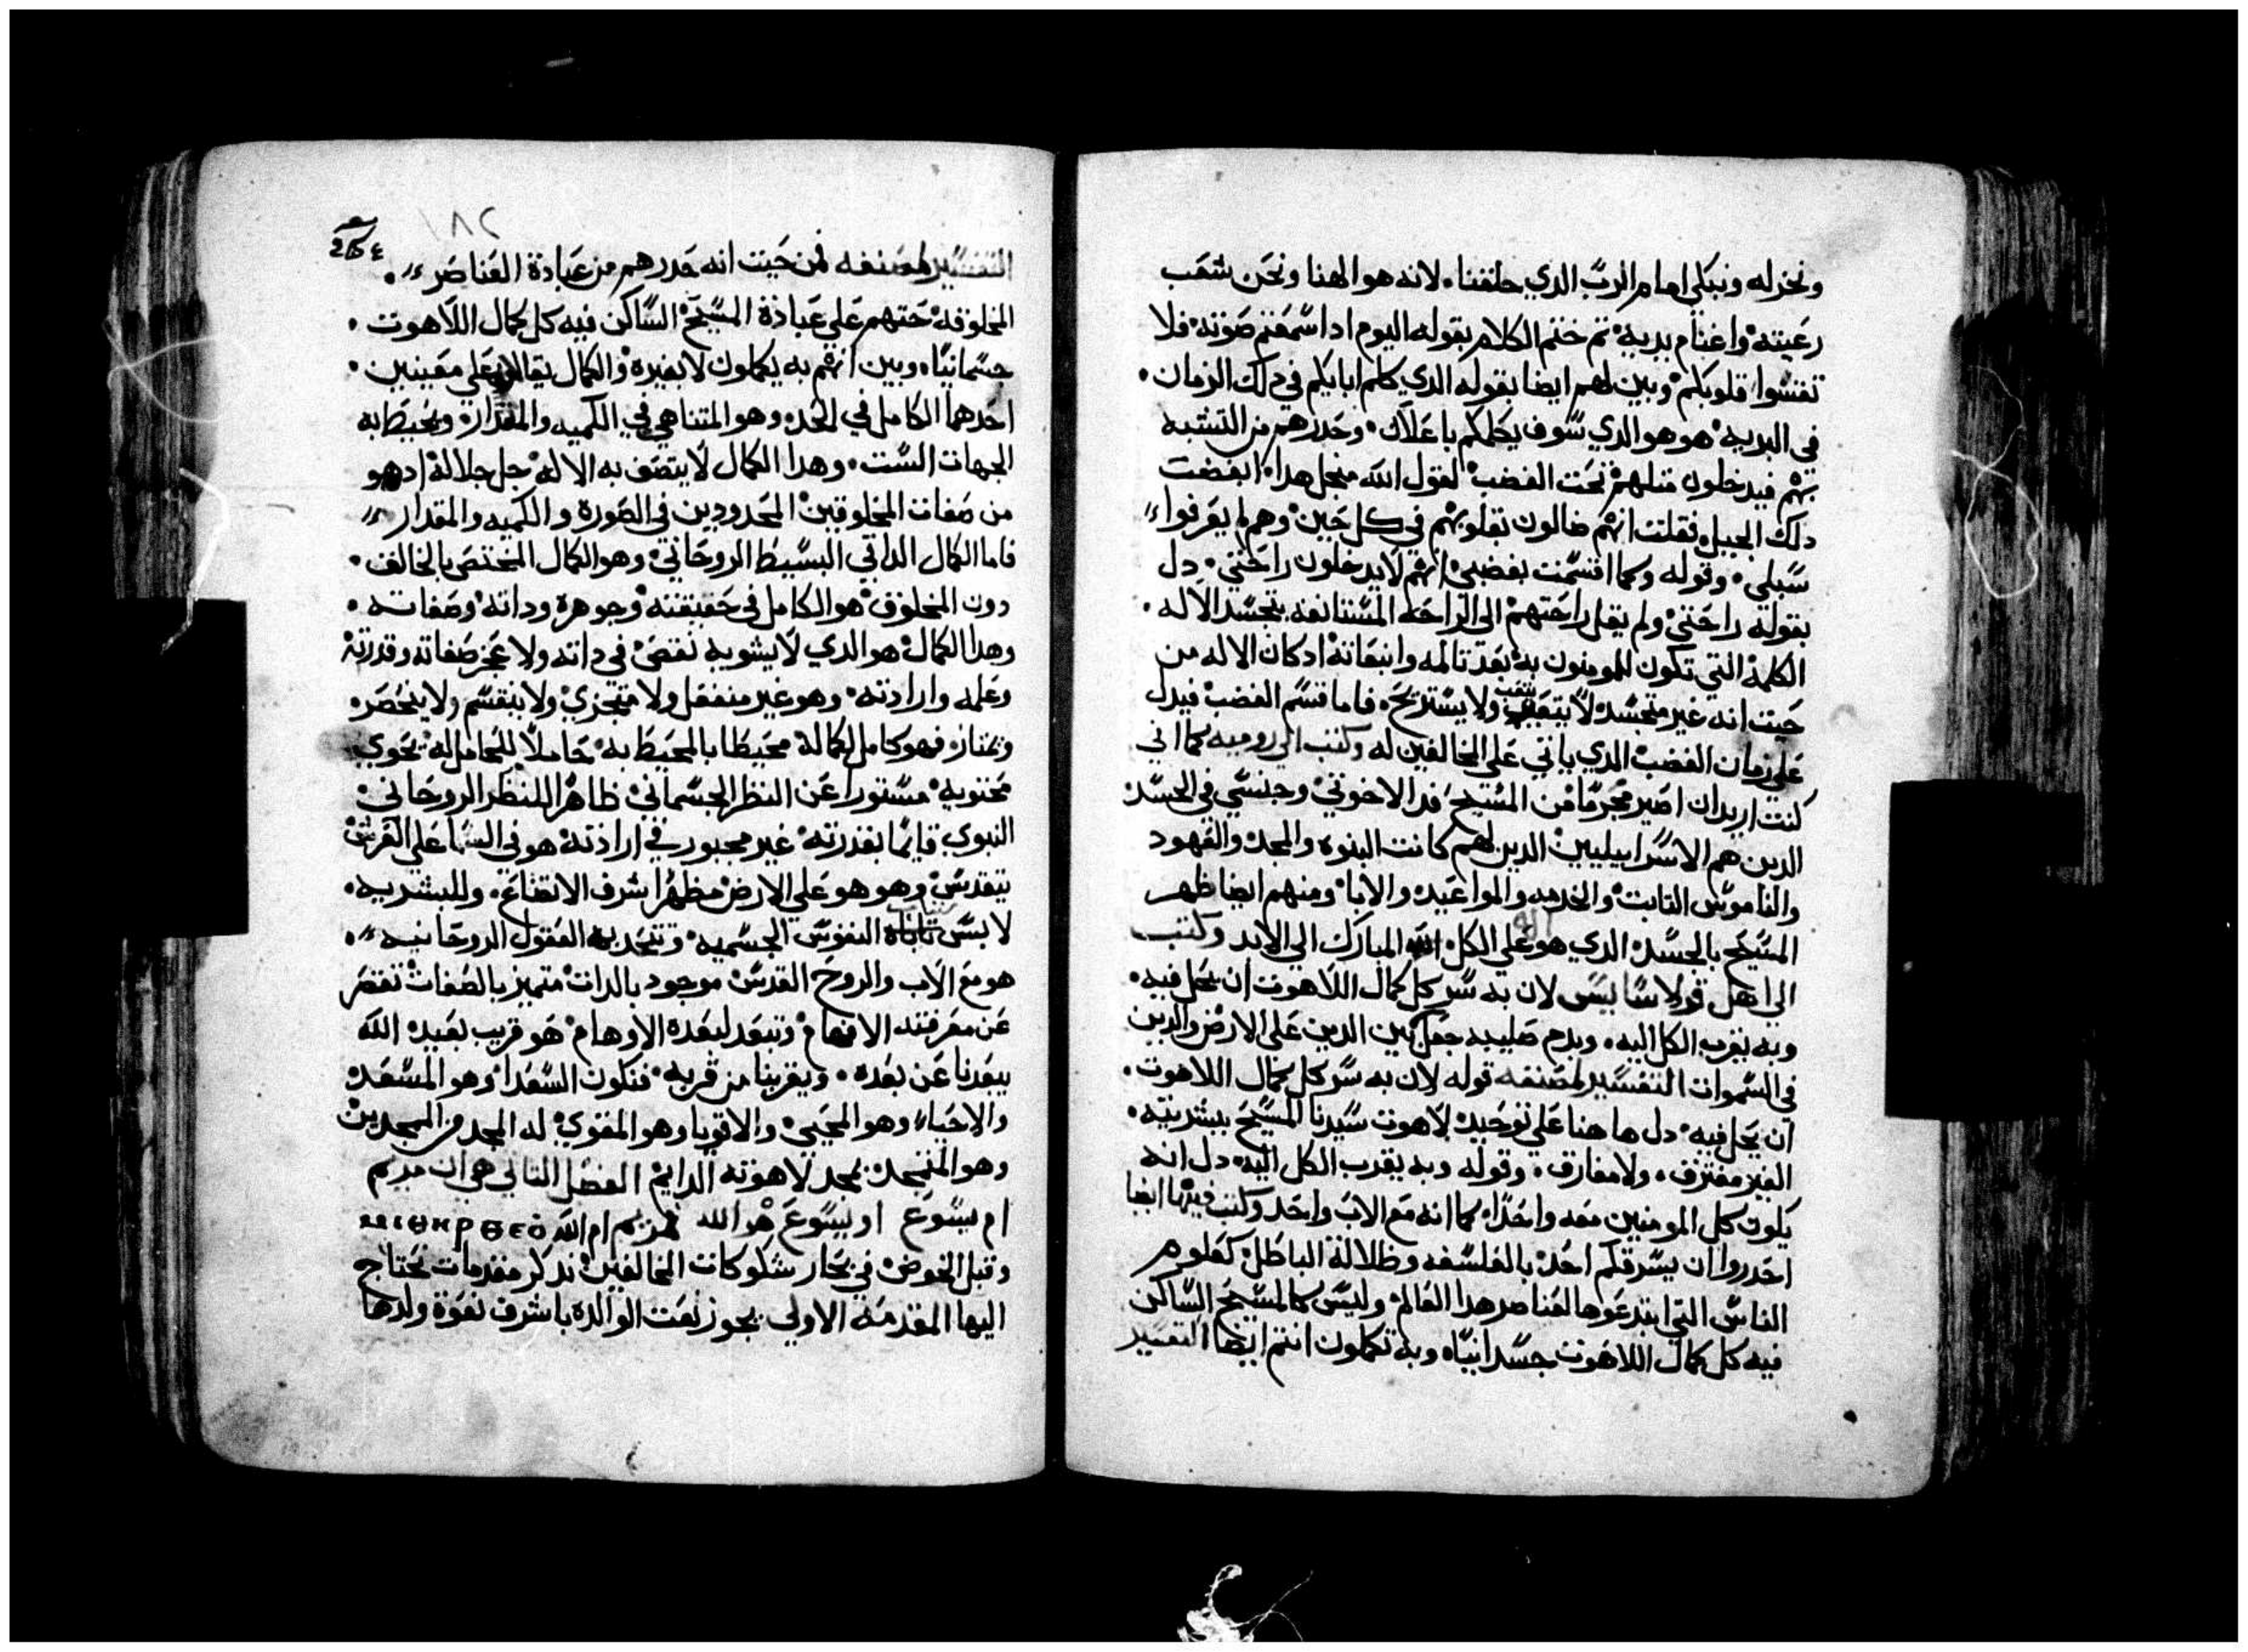 ونخر له ونبكي امام الرب الذي خلقنا. لانه هو الهنا ونحن شعب
رعيته واغنام يديه ثم ختم الكلام بقوله اليوم ادا سمعتم صوته فلا
تقسوا قلوبكم وبين لهم ايضا بقوله الدي كلم ابايكم في دلك الزمان.
في البريه هو هو الدي سوف يكلمكم باعلان. وحدرهم من التشبه
بهم فيدخلون متلهم تحت الغضب لقول الله منجل هدا. ابغضت
دلك الجيل فقلت انهم ضالون بقلوبهم في كل حين وهم لم يعرفوا
سبلي. وقوله وكما اقسمت بغضبي انهم لا يدخلون راحتي. دل
بقوله راحتي ولم يقل راحتهم الى الراحه المستانفه بتجسد الاله.
الكلمة التي تكون للمومنون به بعد تالمه وانبعاته ادكان الاله من
حيت انه غير متجسد لا يتعب ولا يستريح. فاما قسم الغضب فيدل
على زمان الغضب الدي ياتي على المخالفين له وكتب الى روميه كما اني
كنت اريد ان اصير محرما من المسيح فدا لاخوتي وجنسي في الجسد
الدين هم الاسراييليين الدين لهم كانت البنوه والمجد والعهود
والناموس التابت والخدمه والمواعيد والابا ومنهم ايضا ظهر
المسيح بالجسد الدي هو على الكل اله المبارك الي الابد وكتب
الى اهل قولاسايس لان به سر كل كمال اللاهوت ان يحل فيه.
وبه يقرب الكل اليه. وبدم صليبه جعل بين الدين على الارض والدين
في السموات التفسير لمصنفه قوله لان به سر كل كمال اللاهوت.
ان يحل فيه. دل هاهنا على توحيد لاهوت سيدنا المسيح ببشريته.
الغير مفترق. ولا مفارق. وقوله وبه يقرب الكل اليه. دل انه
يكون كل المومنين معه واحدا. كما انه مع الاب واحد وكتب فيها ايضا
احدروا ان يسرقكم احد بالفلسفه وظلالة الباطل كعلوم
الناس التي ابتدعوها لعناصر هدا العالم وليس كالمسيح الساكن
فيه كل كمال اللاهوت جسدانيا. وبه تكملون انتم ايضا التفسير
١٨٢
التفسير لمصنفه فمن حيت انه حدرهم من عبادة العناصر.
المخلوقه حتهم على عبادة المسيح الساكن فيه كل كمال اللاهوت.
جسمانيا. وبين انهم به يكملون لا بغيره والكمال يقال على معنيين.
احدهما الكامل في الحد. وهو المتناهي في الكميه والمقدار. ويحيط به
الجهات الست. وهدا الكمال لا يتصف به الاله جل جلاله ادهو
من صفات المخلوقين المحدودين في الصورة والكميه والمقدار
فاما الكمال الداتي البسيط الروحاني وهو الكمال المختص بالخالق.
دون المخلوق هو الكامل في حقيقته وجوهره وداته وصفاته.
وهدا الكمال هو الدي لا يشوبه نقص في داته ولا عجز صفاته وقدرته
وعلمه وارادته. وهو غير منفعل ولا متجزي ولا ينقسم ولا ينحصر.
ويمتاز. فهو كامل لكماله محيطا بالمحيط به حاملا للحامل له يحوي
محتويه مستورا عن النظر الجسماني ظاهرا للنظر الروحاني
النبوي قايما بقدرته غير مجبور في ارادته هو في السما على العرش
يتقدس وهو هو على الارض مظهرا شرف الاتضاع. وللبشريه.
لابس النفوس الجسميه. وتنجدب العقول الروحانيه.
هو مع الاب والروح القدس موجود بالدات متميز بالصفات تقصر
عن معرفته الافهام وتبعد لبعده الاوهام هو قريب بعيد. الله
يبعدنا عن بعده. ويقربنا من قربه. فنكون السعدا وهو المسعد
والاحياء وهو المحيي والاقويا وهو المقوي له المجد من الممجدين
وهو المتمجد بمجد لاهوته الدايم الفصل التاني هي ان مريم
ام يسوع او يسوع هو الله فمريم ام الله
وقبل الخوض في بحار شكوكات المخالفين ندكر مقدمات نحتاج
اليها المقدمه الاولى يجوز نعت الوالدة باشرف نعوة ولدها